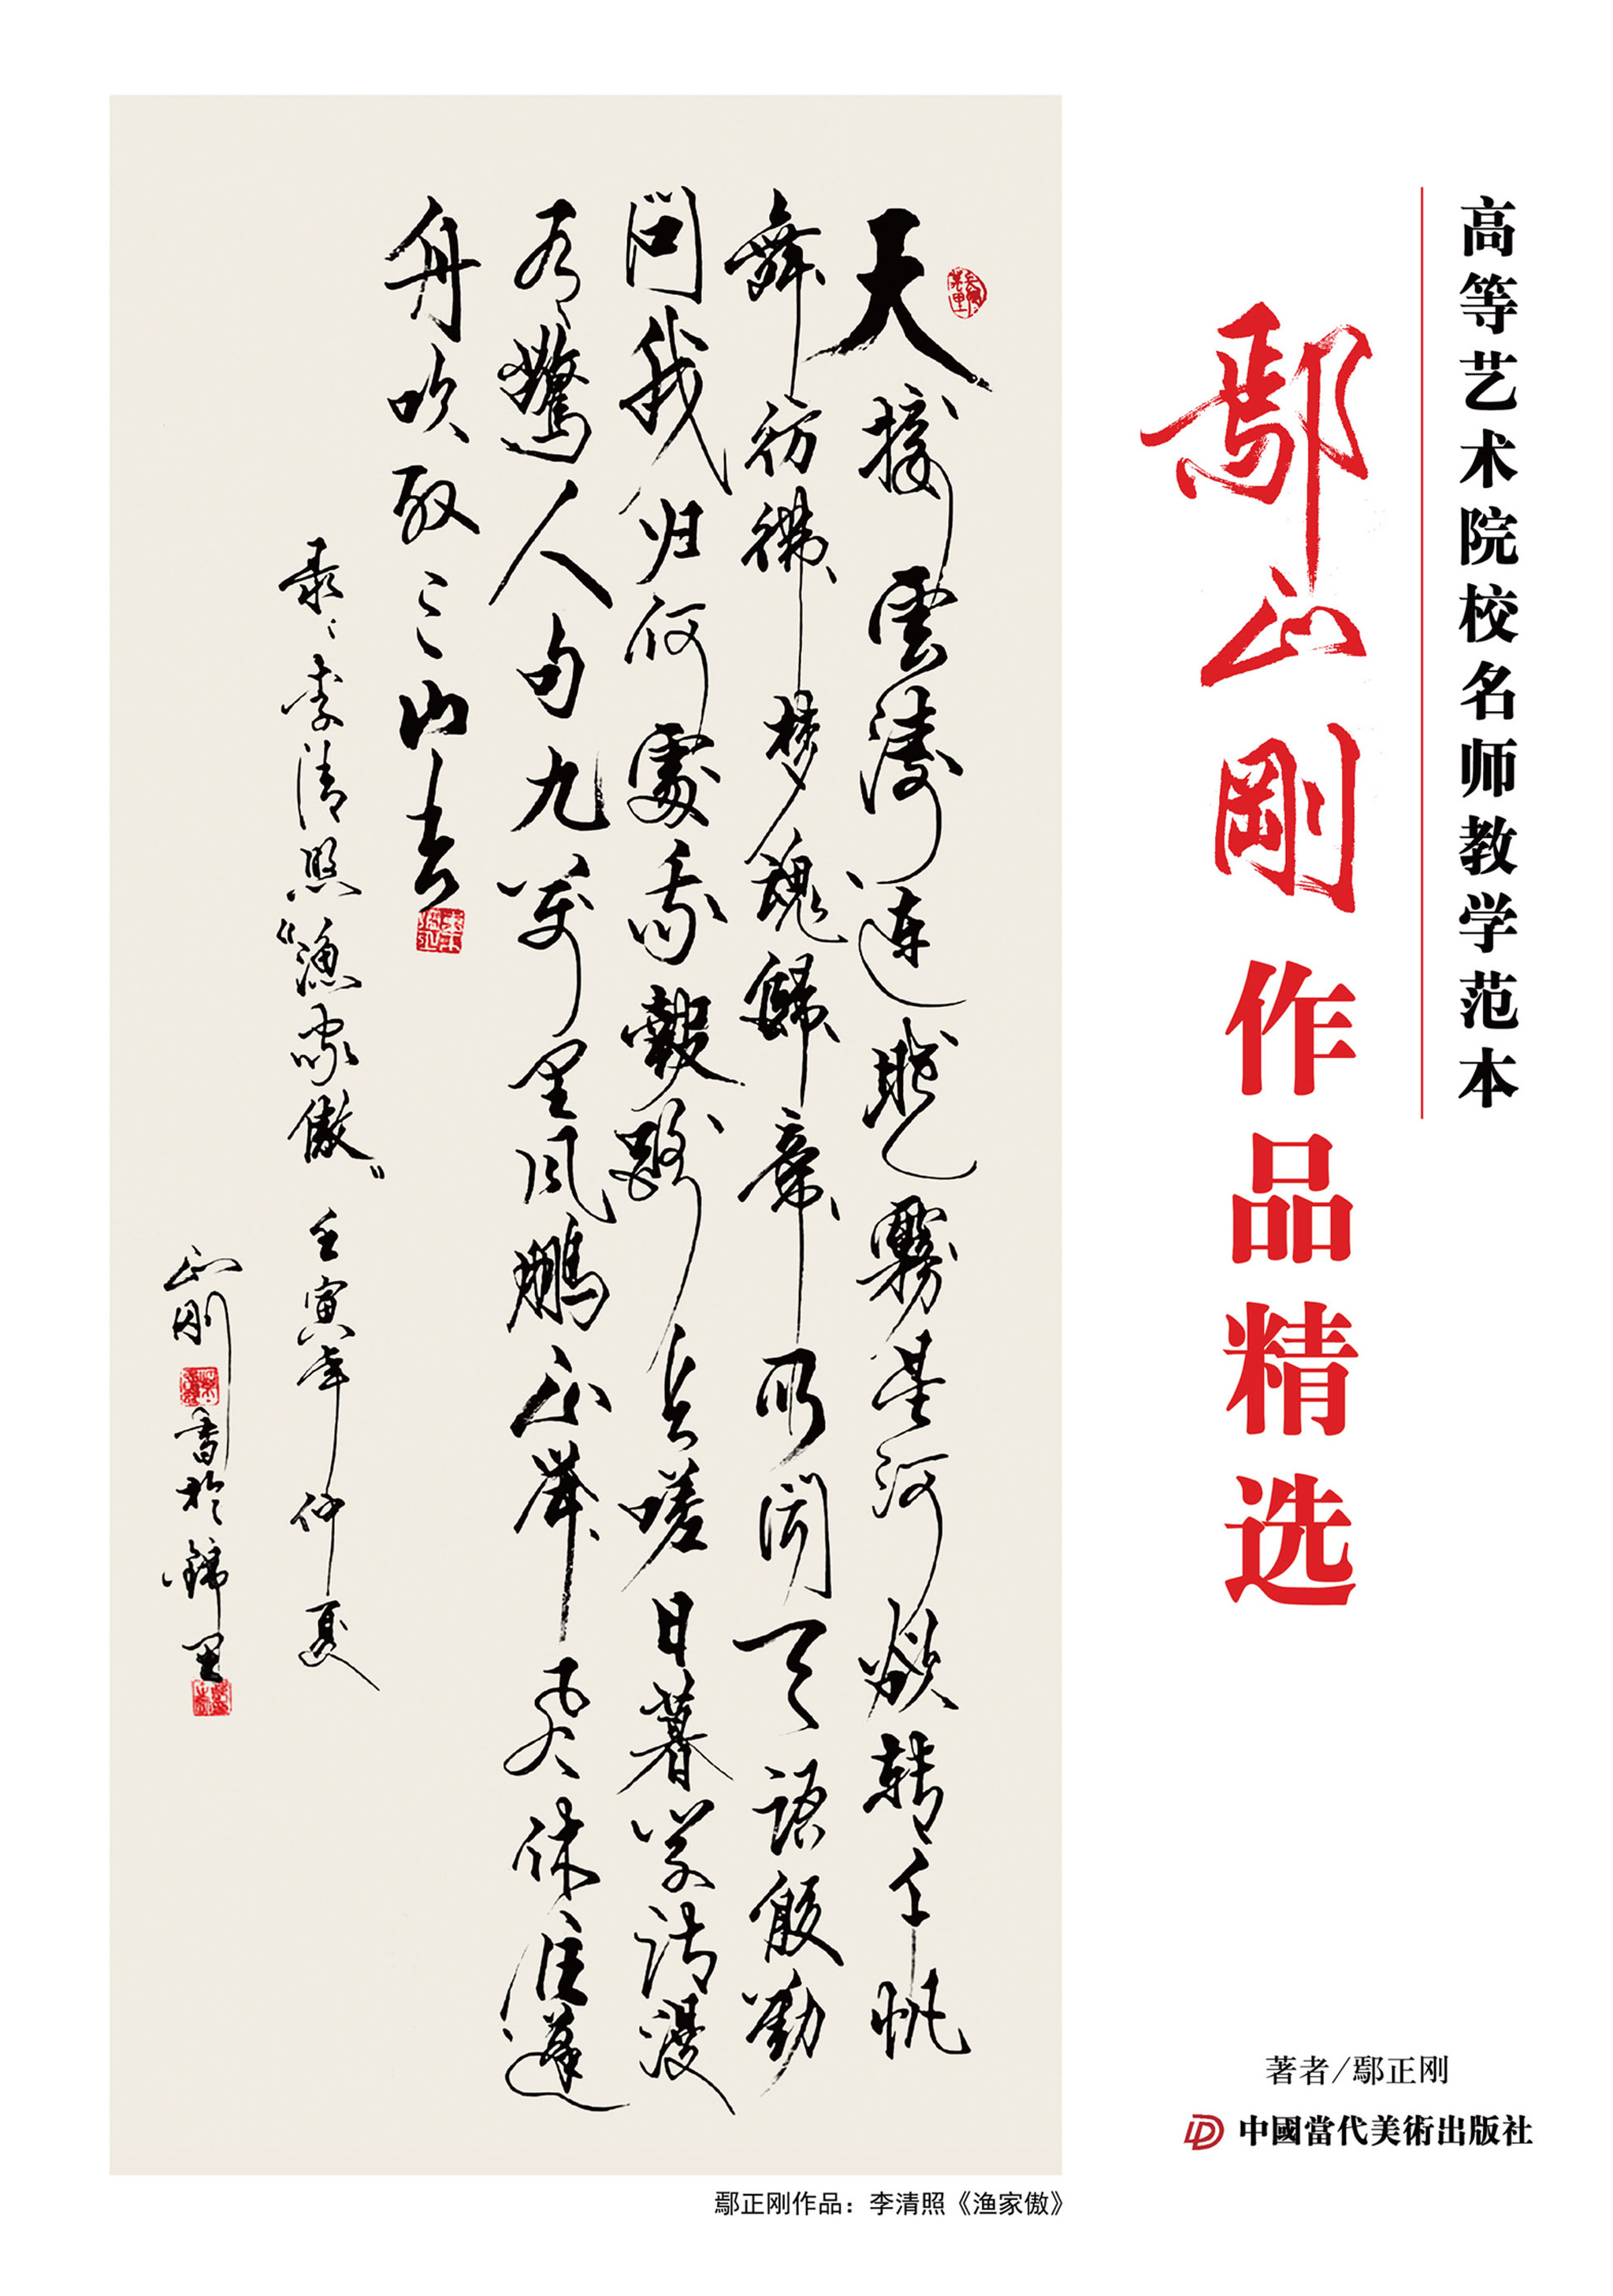 高等艺术院校名师教学范本
鄢正剛作品精选
天接雲濤連曉霧星河欲转千帆
舞彷彿梦魂歸帝所闻天語殷勤
问我归何處我報路长嗟日暮学诗漫
有驚人句九万里风鹏正举风休住蓬
舟吹取三山去
录李清照《渔家傲》壬寅年仲夏
正刚書於錦里
著者/鄢正刚
中國當代美術出版社
鄢正刚作品：李清照《渔家傲》